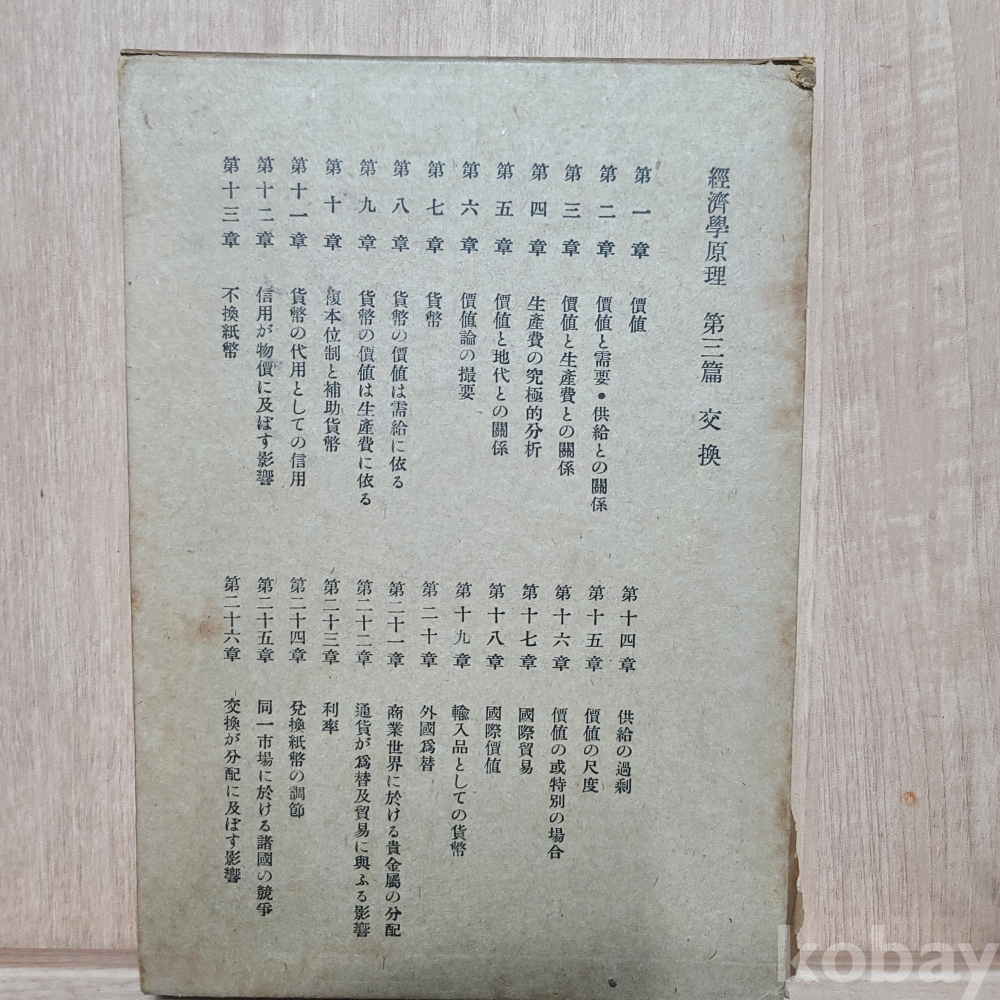 經濟學原理 第三篇 交換
第一章 價値
第二章 價値と需要・供給との關係
第三章 價値と生產費との關係
第四章 生產費の究極的分析
第五章 價値と地代との關係
第六章 價値論の撮要
第七章 貨幣
第八章 貨幣の價値は需給に依る
第九章 貨幣の價値は生產費に依る
第十章 複本位制と補助貨幣
第十一章 貨幣の代用としての信用
第十二章 信用が物價に及ぼす影響
第十三章 不換紙幣
第十四章 供給の過剩
第十五章 價値の尺度
第十六章 價値の或特別の場合
第十七章 國際貿易
第十八章 國際價値
第十九章 輸入品としての貨幣
第二十章 外國爲替
第二十一章 商業世界に於ける貴金屬の分配
第二十二章 通貨が爲替及貿易に與ふる影響
第二十三章 利率
第二十四章 兌換紙幣の調節
第二十五章 同一市場に於ける諸國の競爭
第二十六章 交換が分配に及ぼす影響
kobay